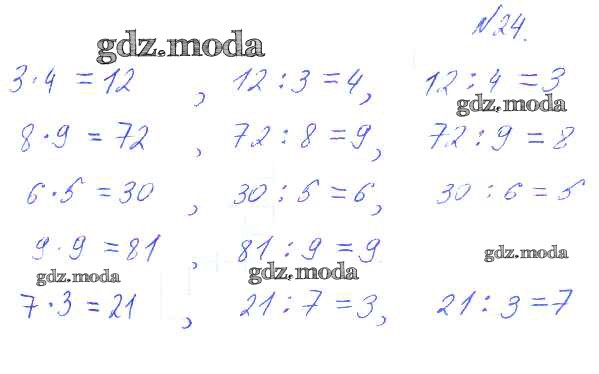 №24.
gdz.moda
3·4 = 12, 12 : 3 = 4, 12 : 4 = 3
gdz.moda
8·9 = 72, 72 : 8 = 9, 72 : 9 = 8
6·5 = 30, 30 : 5 = 6, 30 : 6 = 5
9·9 = 81, 81 : 9 = 9
gdz.moda
gdz.moda
gdz.moda
7·3 = 21, 21 : 7 = 3, 21 : 3 = 7